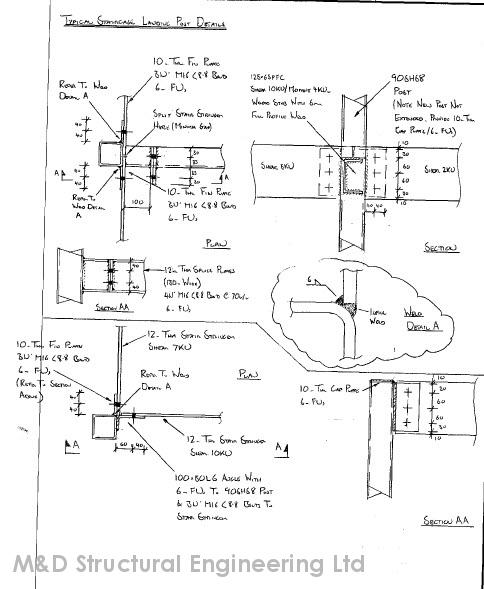 TYPICAL STAIRCASE LANDING POST DETAILS
10-THK FIN PLATE
3No M16 <8.8 BOLTS
6-FW,
REFER TO WELD
DETAIL A
SPLIT STAIR STRINGER
HERE (MINIMUM GAP)
40
40
40
40
A
A
100
30
35
35
30
REFER TO
WELD DETAIL
A
10-THK FIN PLATE
3No M16 <8.8 BOLTS
6-FW,
PLAN
125×65 PFC
SHEAR 10KN/MOMENT 4KN-
WELDED STUB WITH 6mm
FULL PROFILE WELD
90SHS8
POST
(NOTE WHEN POST NOT
EXTENDED, PROVIDE 10-THK
CAP PLATE/6-FW)
SHEAR 8KN
SHEAR 2KN
10
30
60
60
30
10
40 40
SECTION
12-THK SPLICE PLATES
(130-WIDE)
4No M16 <8.8 BOLTS @ 70c/c
6-FW,
SECTION AA
6
WELD
WELD
DETAIL A
10-THK FIN PLATE
3No M16 <8.8 BOLTS
6-FW,
(REFER TO SECTION
ABOVE)
12-THK STAIR STRINGER
SHEAR 7KN
REFER TO WELD
DETAIL A
PLAN
40
40
A
A
60 40
12-THK STAIR STRINGER
SHEAR 10KN
100×80L6 ANGLE WITH
6-FW, TO 90SHS8 POST
& 3No M16 <8.8 BOLTS TO
STAIR STRINGER
10-THK CAP PLATE
6-FW,
10
30
60
60
30
10
SECTION AA
M&D Structural Engineering Ltd